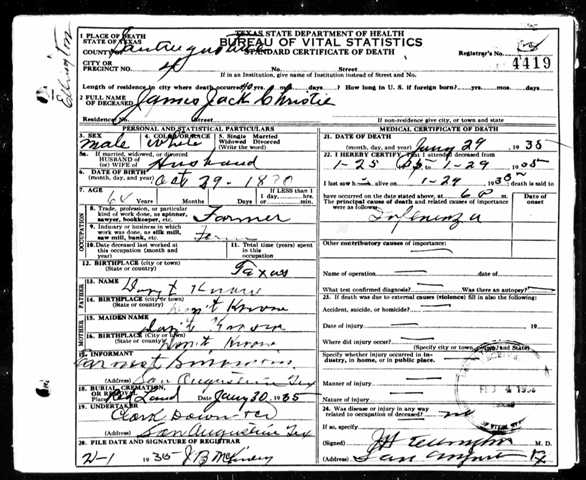 TEXAS STATE DEPARTMENT OF HEALTH
BUREAU OF VITAL STATISTICS
STANDARD CERTIFICATE OF DEATH
1 PLACE OF DEATH
STATE OF TEXAS
COUNTY OF San Augustine
CITY OR PRECINCT NO. 4 No. Street
Registrar's No.
4419
If in an Institution, give name of Institution instead of Street and No.
Length of residence in city where death occurred yrs. mos. days. How long in U. S. if foreign born? yrs. mos. days.
2 FULL NAME OF DECEASED James Jack Christie
Residence: No. Street
If non-resident give city, or town and state
PERSONAL AND STATISTICAL PARTICULARS
3. SEX male
4. COLOR OR RACE White
5. Single Married Widowed Divorced (Write the word)
5a. If married, widowed, or divorced HUSBAND OF (or) WIFE OF Husband
6. DATE OF BIRTH (month, day, and year) Oct 29 - 1870
7. AGE 64 Years Months Days If LESS than 1 day, hrs. or min.
OCCUPATION
8. Trade, profession, or particular kind of work done, as spinner, sawyer, bookkeeper, etc. Farmer
9. Industry or business in which work was done, as silk mill, saw mill, bank, etc. Farm
10. Date deceased last worked at this occupation (month and year)
11. Total time (years) spent in this occupation
12. BIRTHPLACE (city or town) (State or country) Texas
FATHER
13. NAME Don't Know
14. BIRTHPLACE (city or town) (State or country) Don't Know
MOTHER
15. MAIDEN NAME Don't Know
16. BIRTHPLACE (city or town) (State or country) Don't Know
17. INFORMANT Earnest
(Address) San Augustine Tex
18. BURIAL, CREMATION, OR REMOVAL
Place Land Date Jany 30, 1935
19. UNDERTAKER Clark Downs
(Address) San Augustine Tex
20. FILE DATE AND SIGNATURE OF REGISTRAR
2-1 1935 J B McKinney
MEDICAL CERTIFICATE OF DEATH
21. DATE OF DEATH (month, day, and year) Jany 29, 1935
22. I HEREBY CERTIFY, That I attended deceased from
1-25 1935 to 1-29 1935
I last saw h alive on 1-29 1935 death is said to
have occurred on the date stated above, at 6 m.
The principal cause of death and related causes of importance were as follows: Date of onset
Influenza
Other contributory causes of importance:
Name of operation date of
What test confirmed diagnosis? Was there an autopsy?
23. If death was due to external causes (violence) fill in also the following:
Accident, suicide, or homicide?
Date of injury 19
Where did injury occur?
(Specify city or town, county, and State)
Specify whether injury occurred in industry, in home, or in public place.
Manner of injury
Nature of injury
24. Was disease or injury in any way related to occupation of deceased? no
(Signed) J H Ellington M. D.
(Address) San Augustine Tx
Ellington